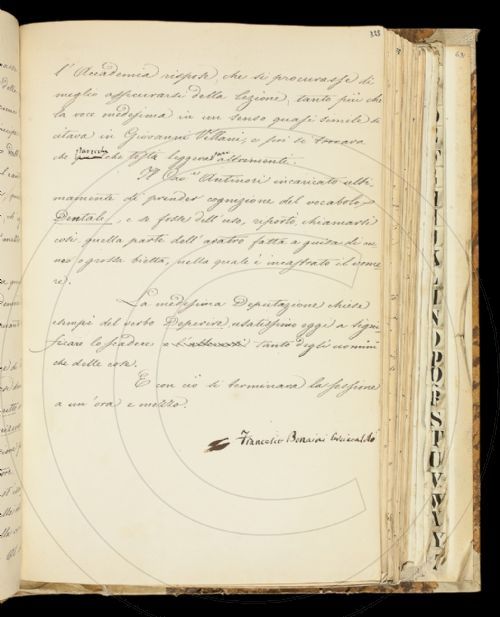 323
l'Accademia rispose, che si procurasse di
meglio assicurarsi della lezione, tanto più che
la voce medesima in un senso quasi simile si
citava in Giovanni Villani, e poi si trovava
che parecchi che testi leggevano altrimenti.
Il Cav.re Antinori incaricato ulti-
mamente di prender cognizione del vocabolo
Dentale, e se fosse dell'uso, reportò chiamarsi
così quella parte dell'aratro fatta a guisa di
o grossa bietta, nella quale è incastrato il vome
re).
La medesima Deputazione chiese
esempi del verbo Deperire usatissimo oggi a signi
ficare lo scadere e tanto degli uomini
che delle cose.
E con ciò si terminava la sessione
a un'ora e mezzo.
Francesco Bonaini